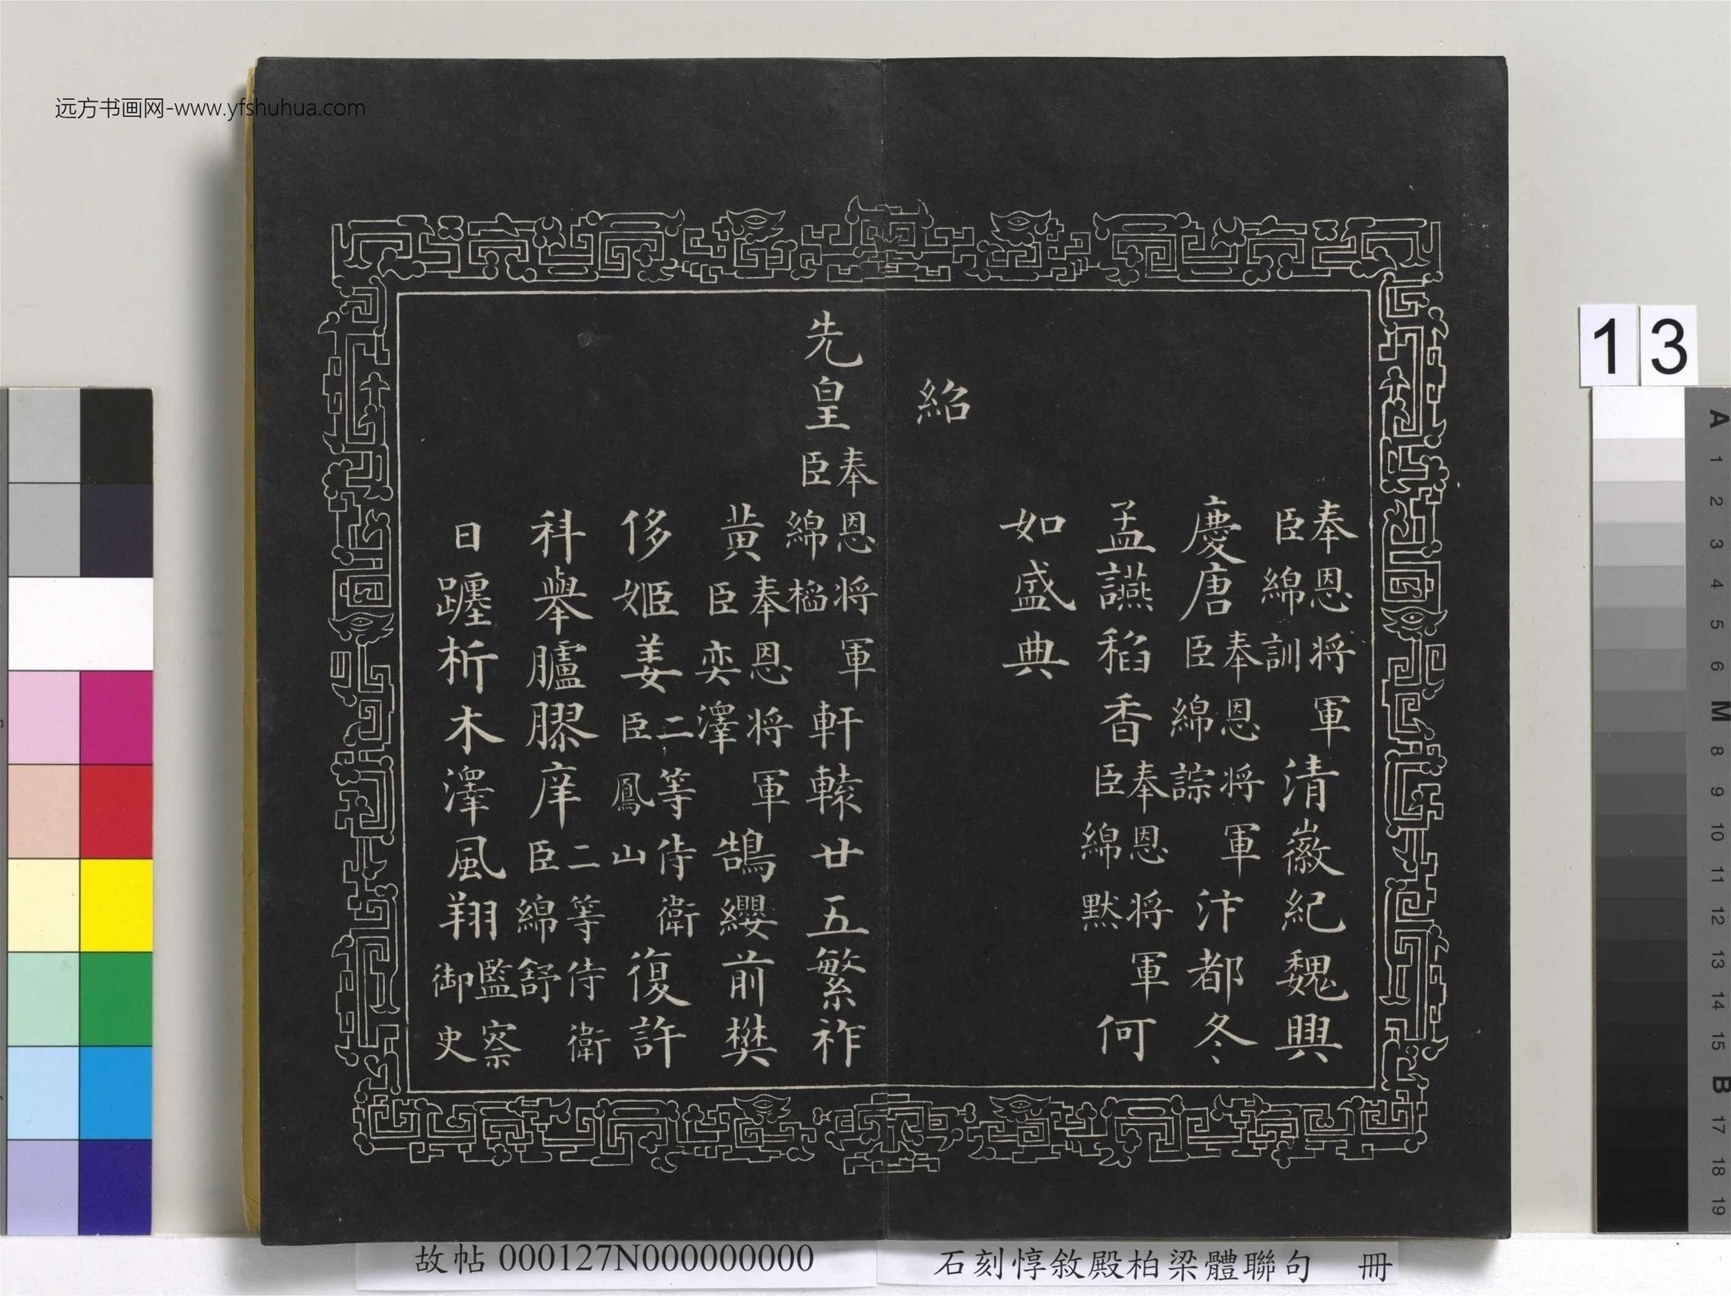 远方书画网-www.yfshuhua.com
奉恩将軍臣綿訓清徽紀魏興
慶唐奉恩将軍臣綿誴汴都冬
孟讌稻香奉恩将軍臣綿默何
如盛典
紹
先皇奉恩将軍臣綿軒轅廿五繁祚
黄奉恩将軍臣奕澤鵠纓前樊
侈姬姜二等侍衛臣鳳山復許
科舉臚膠庠二等侍衛臣綿舒
日躔析木澤風翔監察御史
13
A
1
2
3
4
5
6
M
8
9
10
11
12
13
14
15
B
17
18
19
故帖 000127N000000000
石刻惇敘殿柏梁體聯句 冊